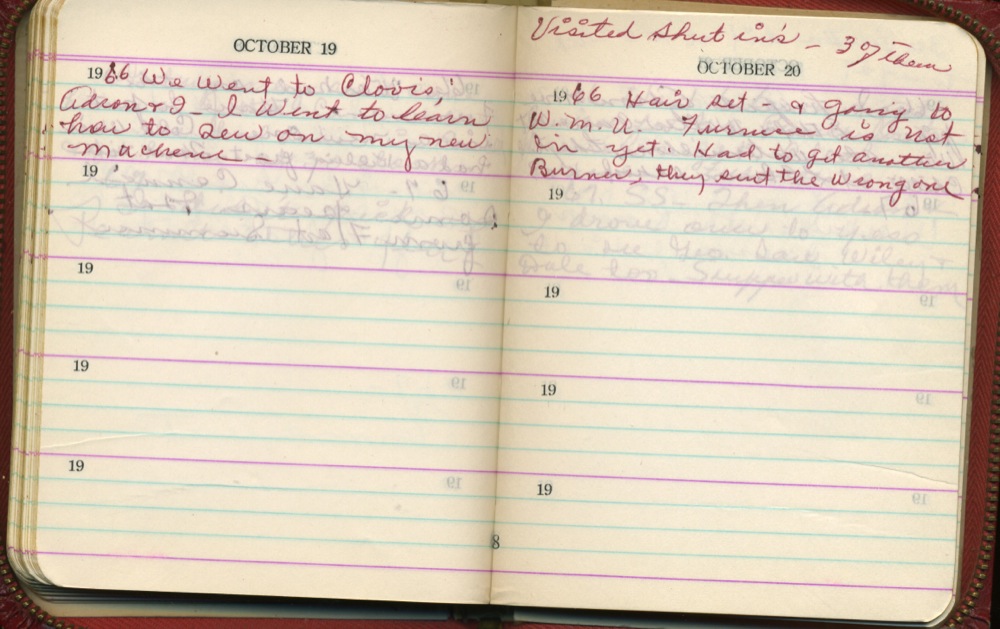 OCTOBER 19
1966 We Went to Clovis,
Aaron & I - I Went to learn
how to sew on my new
machene -
19
19
19
19
Visited Shut in's - 3 of them
OCTOBER 20
1966 Hair set - & going to
W.M.U. Furnace is not
in yet. Had to get another
Burner, they sent the wrong one
19
19
19
19
8